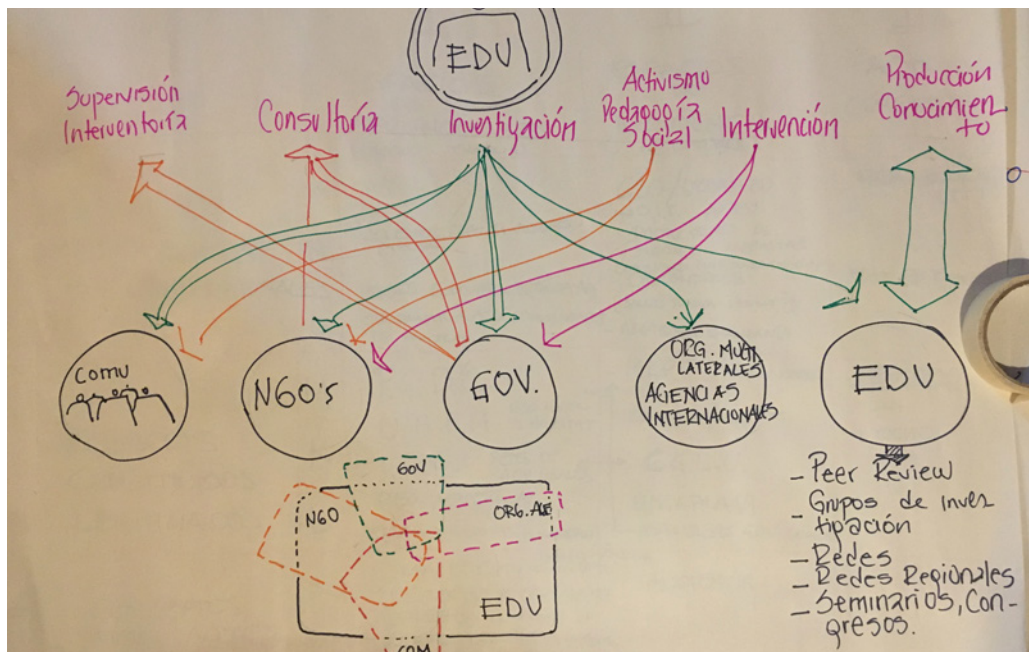 EDU
Supervisión
Interventoría
Consultoría
Investigación
Activismo
Pedagogía
Social
Intervención
Producción
Conocimien
to
COMU
NGO's
GOV.
ORG. MULTI
LATERALES
AGENCIAS
INTERNACIONALES
EDU
- Peer Review
- Grupos de inves
tigación
- Redes
- Redes Regionales
- Seminarios, Con-
gresos.
GOV
NGO
ORG. AGE
EDU
COM